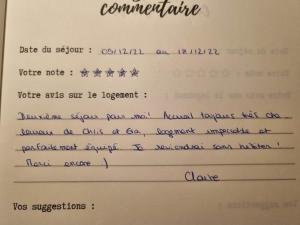 commentaire
Date du séjour : 09/12/22 au 18/12/22
Votre note : ☆☆☆☆☆
Votre avis sur le logement :
Deuxième séjour pour moi! Accueil toujours très
de Chris et logement impeccable et
parfaitement équipé. Je reviendrai sans hésiter!
Merci encore :)
Claire
Vos suggestions :